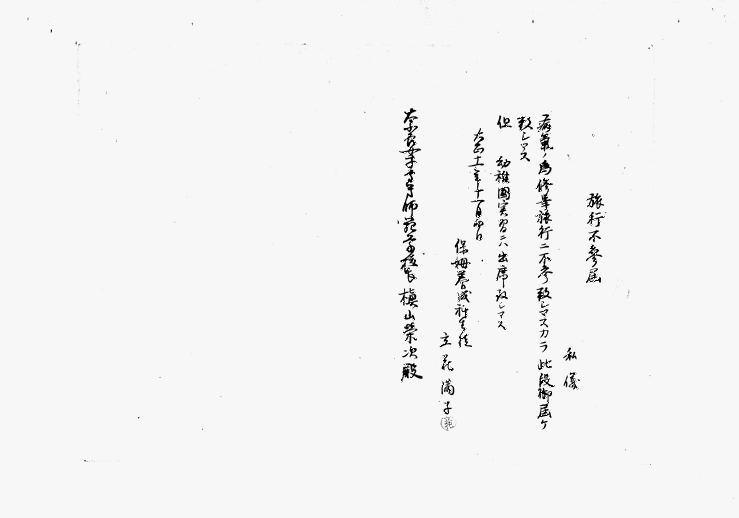 旅行不參届
私儀
病氣ノ爲修學旅行ニ不參致シマスカラ此段御届ケ
致シマス
但 幼稚園実習ニハ出席致シマス
大正十一年十一月四日
保姆養成科生徒
立花満子
奈良女子高等師範学校長槇山榮次殿